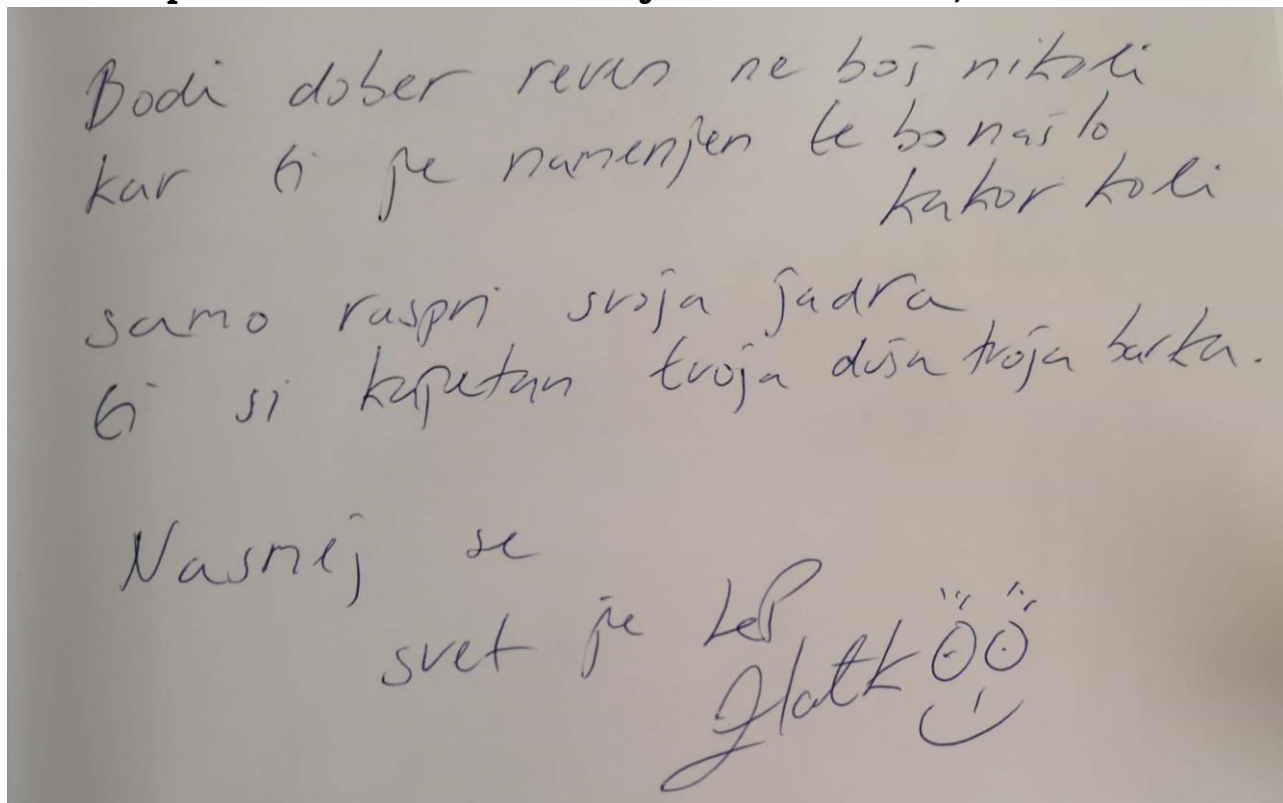 Bodi dober reven ne boš nikoli
kar ti je namenjen te bo našlo
kakor koli
samo raspri svoja jadra
ti si kapetan tvoja duša tvoja barka.
Nasmej se
svet je lep
Zlatko